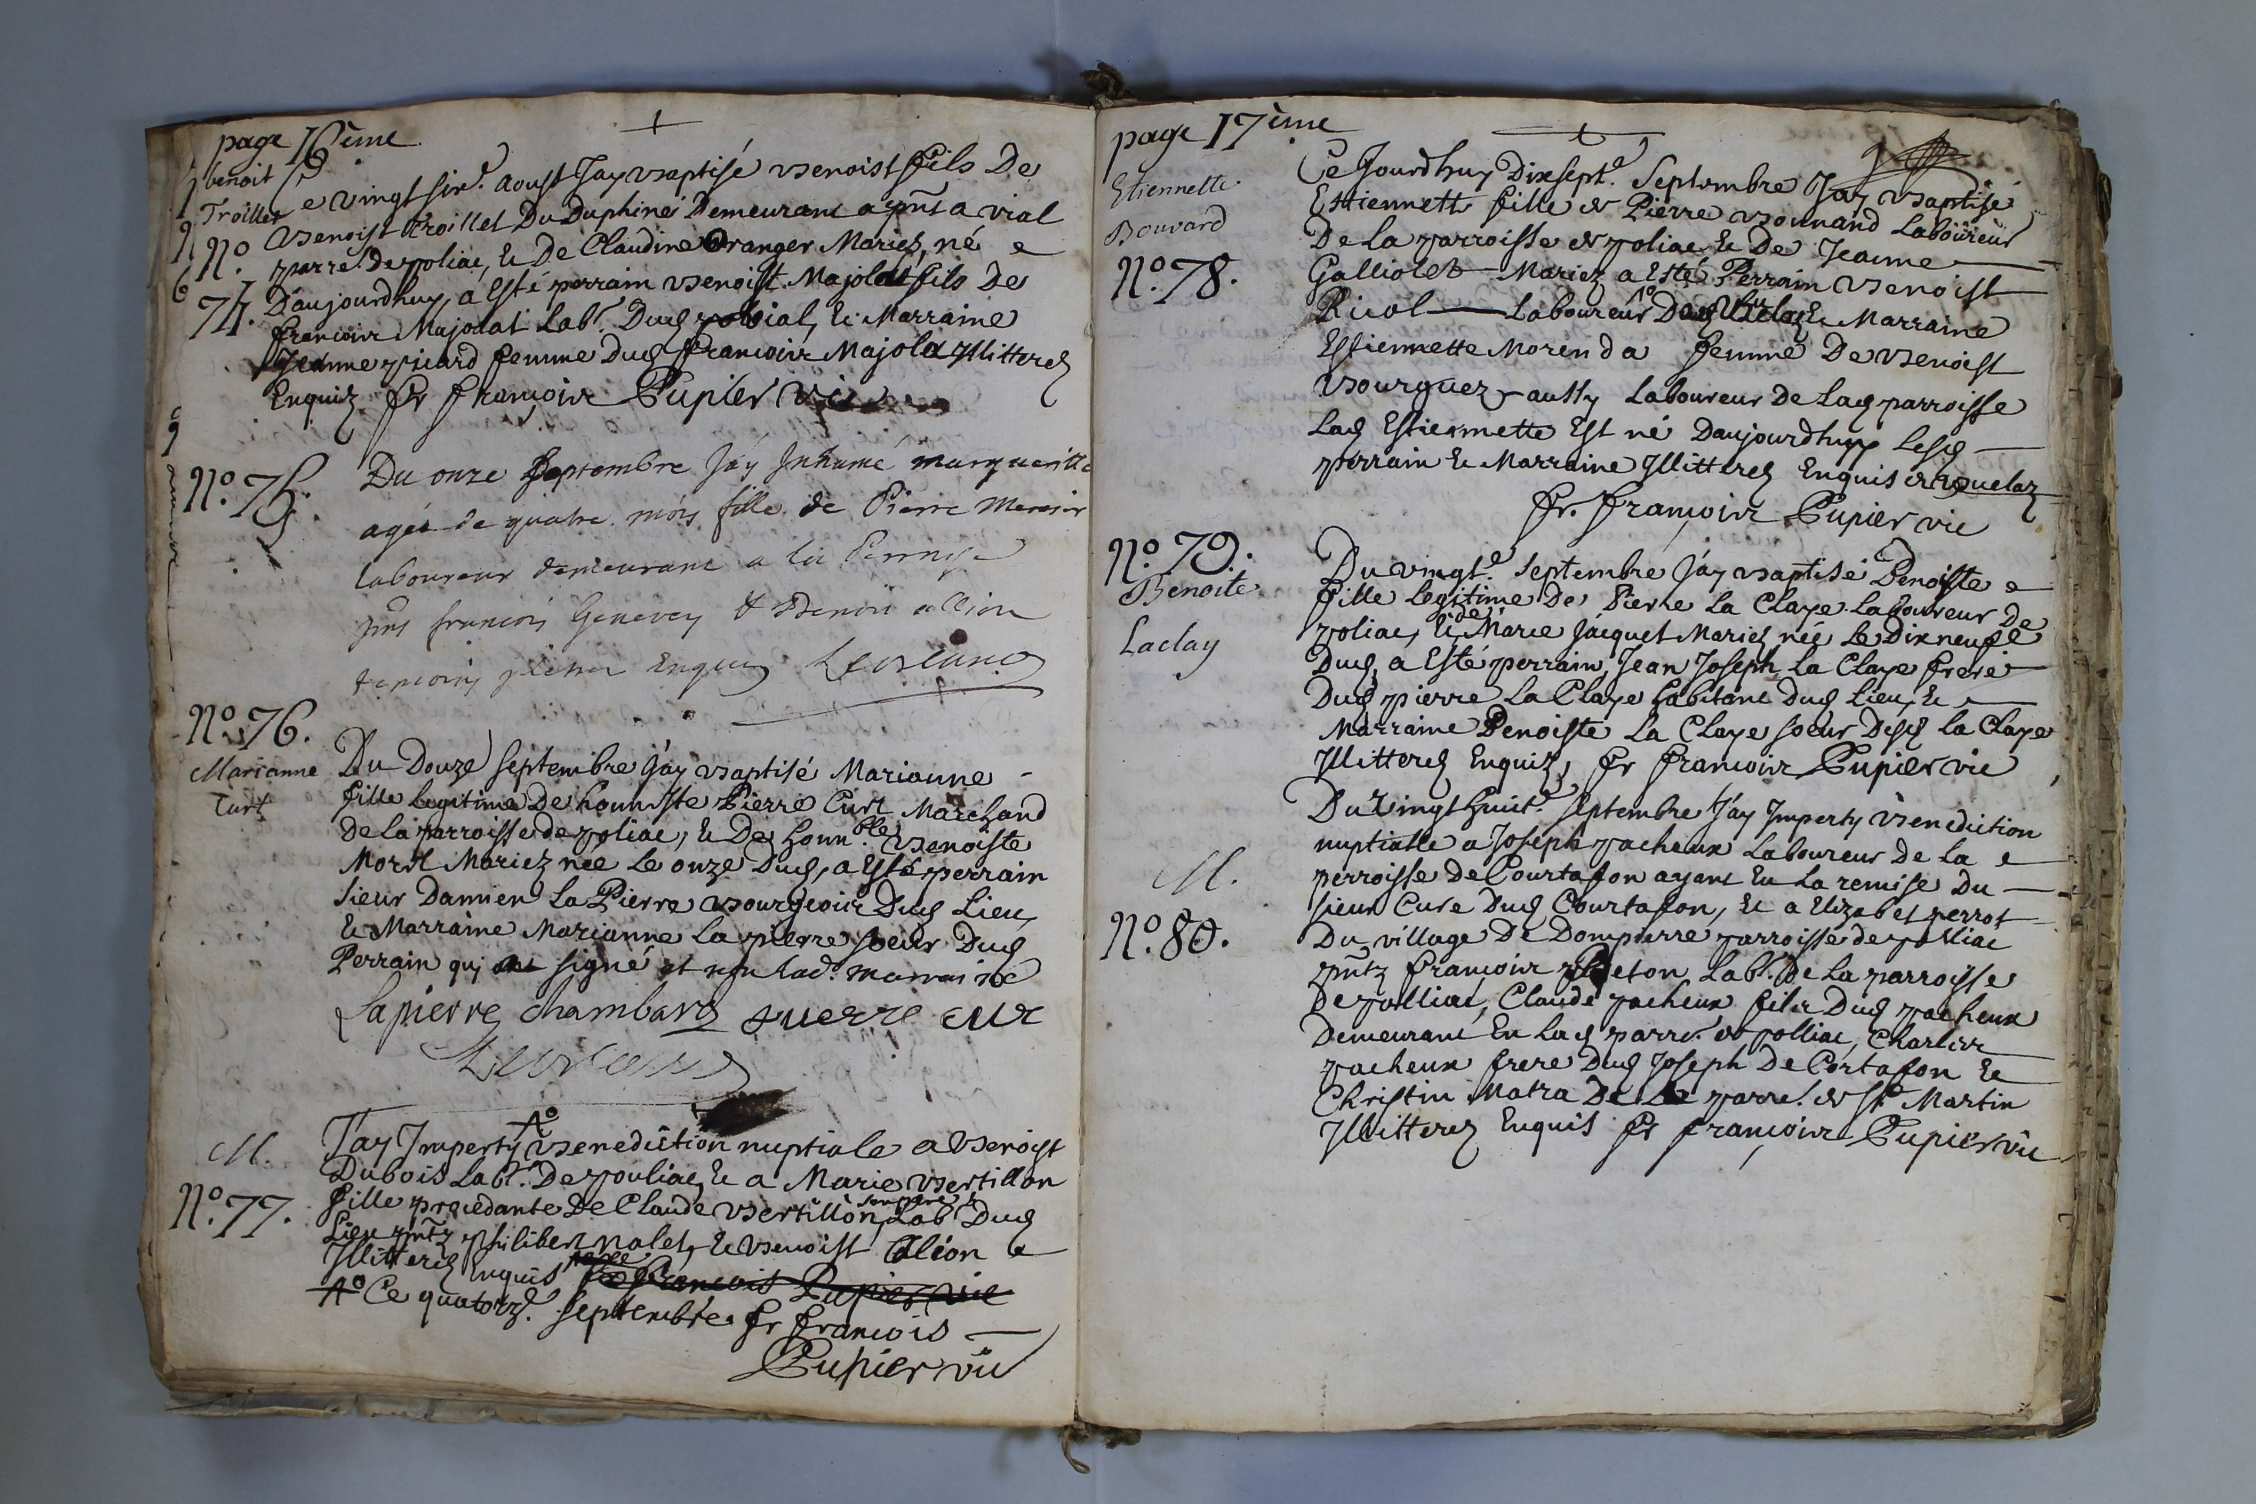 page 16ème
benoit
Troillet
N.º
74.
Ce vingt sixe. aoust Jay Baptisé Benoist fils De
Benoist troillet Du Duphiné Demeurant a pnt a vial
parre. De poliac, Et De Claudine Granger Mariez, né
Daujourdhuy, a Esté perrain Benoist Majolat fils De
francoix Majolat Labr. Dud vial, Et Marraine
Jeanne picard femme Dud francoix Majola Jllitterez
Enquiz fr françoix Pupier vic
N.º 75.
Du onze septembre Jáy Jnhumé marguerille
agée de quatre mois fille de Pierre Mercier
laboureur demeurant a la
pns francois Genevey & Benoi allion
temoins Enquis Leblanc
N.º 76.
Marianne
Curt
Du Douze septembre Jáy Baptisé Marianne
fille Legitime De honneste Pierre Curt Marchand
De la parroisse de poliac, Et De honn.ble Benoiste
Morel Mariez née Le onze Dud, a Esté perrain
sieur Damien La Pierre Bourgeoix Dud Lieu,
Et Marraine Marianne La pierre soeur Dud
Perrain qui ont signé et non lad. marraine
Lapierre chambard pierre cur
Leblanc
M.
N.º 77.
J'ay Jmperty Aº Benediction nuptiale a Benoist
Dubois Labr. De pouliac, Et a Marie Bertillon
fille procedante De Claude Bertillon, son pere Labr Dud
Lieu pntz philibert nalet, Et Benoist Alion
Jllitterez Enquis fr francois Pupier vic
Aº Ce quatorze. septembre. fr francois
Pupier vic
page 17ème
Etiennette
Bouvard
N.º 78.
Ce Jourdhuy Dixsept.e Septembre Jay Baptisé
Estiennette fille de Pierre Bounand Laboureur
De La parroisse de poliac, Et De Jeanne
Galliolet Mariez a Esté Perrain Benoist
Ricol Laboureur Et Marraine
Estiennette Morenda femme De Benoist
Bourguez aussy Laboureur de Lad parroisse
Lad Estiennette Est né Daujourdhuy Lesd
perrain Et Marraine Jllitterez Enquis
fr. françoix Pupier vic
N.º 79.
Benoite
Laclay
Du vingt.e septembre Jáy Baptisé Benoiste
fille Legitime De Pierre La Claye Laboureur De
poliac, Et de Marie Jacquet Mariez née Le Dix neufe
Dud, a Esté perrain, Jean Joseph La Claye frere
Dud pierre La Claye habitant Dud Lieu, Et
Marraine Benoiste La Claye soeur Desd La Claye
Jllitterez Enquiz, fr francoix Pupier vic
M.
N.º 80.
Du Vingt huit.e septembre Jáy Jmperty Benediction
nuptialle a Joseph pacheux Laboureur de La
perroisse De Courtafon ayant Eu La remise Du
sieur Cure Dud Courtafon, Et a Elizabet perrot
Du village De Dompierre parroisse de polliac
pntz francoix Labr. De La parroisse
De polliac, Claude pacheux fils Dud pacheux
Demeurant En Lad parre. de polliac, Charles
pacheux frere Dud Joseph De Cortafon Et
Christin Matra De La parre. de St. Martin
Jllitterez Enquis fr francoix Pupier vic